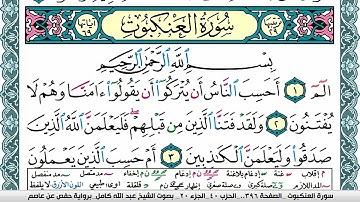 سورة العنكبوت
بِسْمِ اللَّهِ الرَّحْمَٰنِ الرَّحِيمِ
الٓمٓ ١ أَحَسِبَ النَّاسُ أَن يُتْرَكُوٓا۟ أَن يَقُولُوٓا۟ ءَامَنَّا وَهُمْ لَا
يُفْتَنُونَ ٢ وَلَقَدْ فَتَنَّا الَّذِينَ مِن قَبْلِهِمْ فَلَيَعْلَمَنَّ اللَّهُ الَّذِينَ
صَدَقُوا۟ وَلَيَعْلَمَنَّ الْكَٰذِبِينَ ٣
سورة العنكبوت الصفحة ٣٩٦، الحزب ٤٠، الجزء ٢٠ بصوت الشيخ عبد الله كامل برواية حفص عن عاصم